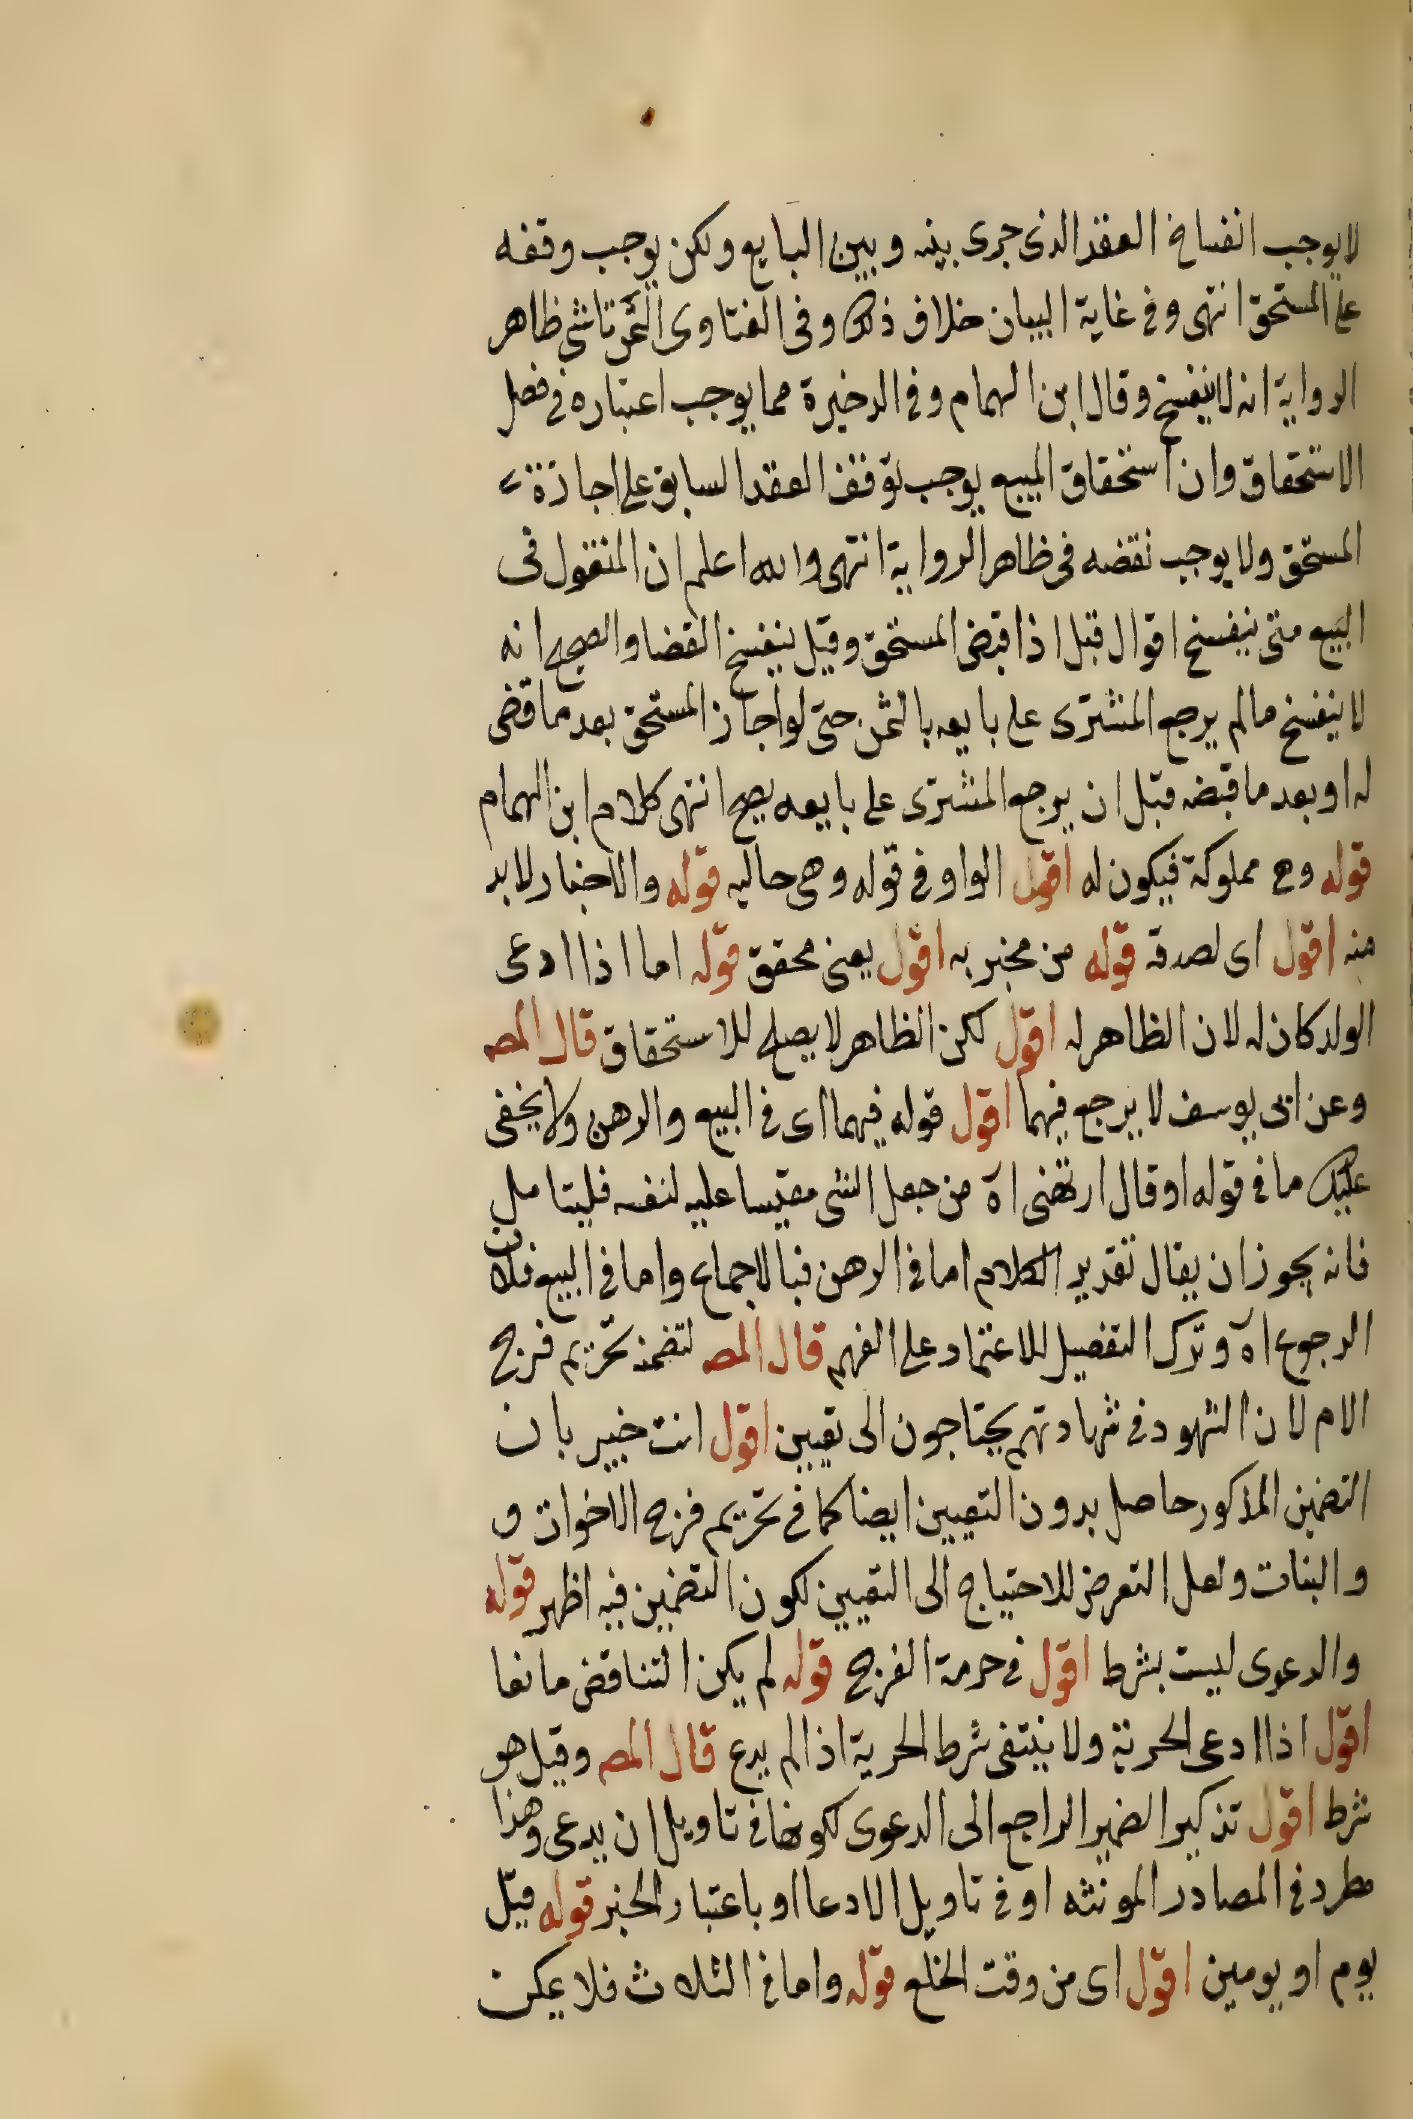 لا يوجب انفساخ العقد الذى جرى بينه وبين البايع ولكن يوجب وقفه
على المستحق انتهى وفى غاية البيان خلاف ذلك وفى الفتاوى التمرتاشى ظاهر
الرواية انه لا ينفسخ وقال ابن الهمام وفى الذخيرة مما يوجب اعتباره فى فصل
الاستحقاق وان استحقاق المبيع يوجب توقف العقد السابق على اجازة
المستحق ولا يوجب نقضه فى ظاهر الرواية انتهى والله اعلم ان المنقول فى
البيع متى ينفسخ اقوال قبل اذا قبض المستحق وقيل ينفسخ القضا والصحيح انه
لا ينفسخ مالم يرجع المشترى على بايعه بالثمن حتى لو اجاز المستحق بعد ما قضى
له او بعد ما قبضه قبل ان يرجع المشترى على بايعه يصح انتهى كلام ابن الهمام
قوله وهى مملوكة فيكون له اقول الواو فى قوله وهى حاليه قوله والاخبار لا بد
منه اقول اى لصدقه قوله من مخبر به اقول يعنى محقق قوله اما اذا ادعى
الولد كان له لان الظاهر له اقول لكن الظاهر لا يصلح للاستحقاق قال المص
وعن ابى يوسف لا يرجع فيهما اقول قوله فيهما اى فى البيع والرهن ولا يخفى
عليك ما فى قوله او قال ارتهنى اه من جعل الشى مقيسا عليه لنفسه فليتامل
فانه يجوز ان يقال تقدير الكلام اما فى الرهن فبالاجماع واما فى البيع فلان
الرجوع اه وترك التفصيل للاعتماد على الفهم قال المص لتضمنه تحريم فرج
الام لان الشهود فى شهادتهم يحتاجون الى تعيين اقول انت خبير بان
التضمين المذكور حاصل بدون التعيين ايضا كما فى تحريم فرج الاخوات و
والبنات ولعل التعرض للاحتياج الى التعيين لكون التضمين فيه اظهر قوله
والدعوى ليست بشرط اقول فى حرمة الفرج قوله لم يكن التناقض مانعا
اقول اذا ادعى الحرية ولا ينتفى شرط الحرية اذا لم يدع قال المص وقيل هو
شرط اقول تذكير الضمير الراجع الى الدعوى لكونها فى تاويل ان يدعى وهذا
مطرد فى المصادر المونثه او فى تاويل الادعا او باعتبار الخبر قوله قبل
يوم او يومين اقول اى من وقت الخلع قوله واما فى الثلاث فلا يمكن